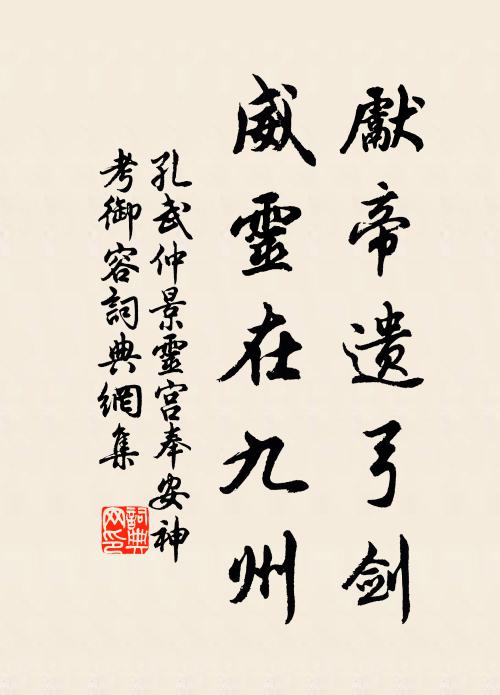 獻帝遺弓劍
威靈在九州
孔武仲景靈宮奉安神
考御容詞典網集
詞典网印